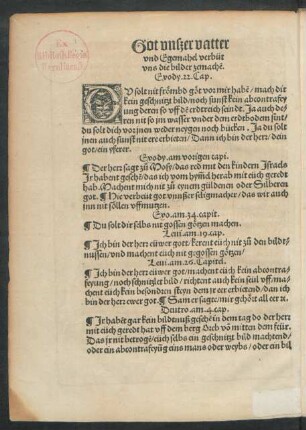 Got vnszer vatter
vnd Egemahel verbüt
vns die bilder zemachē.
Exody.22.Cap.
DV solt nit frömbd göt vor mir habē / mach dir
kein geschnitzt bild noch sunst kein abcontrafey
ung deren so vff dē erdtreich send. Ja auch de
ren nit so im wasser vnder dem erdtbodem sint /
du solt dich vor inen weder neygen noch bücken. Ja du solt
inen auch sunst nit ere erbieten / Dann ich bin der herr / dein
got / ein yferer.
Exody.am vorigen capi.
¶ Der herr sagt zů Mosy / das red mit den kindern Israels
Ir habent gesehē das ich vom hymel herab mit eüch geredt
hab. Machent mich nit zů eynem güldenen oder Silberen
got. ¶ Hie verbeüt got vnnser eegmacher / das wir auch
inn nit söllen vffmutzen.
Exo.am.34.capit.
¶ Du solt dir selbs nit gossen götzen machen.
Leui.am.19.cap.
¶ Ich bin der herr eüwer gott / kerent eüch nit zů den bildt-
nussen / vnd machent eüch nit gegossen götzen /
Leui.am.26.Capitel.
¶ Ich bin der herr eüwer got / machent eüch kein abcontra-
feyung / noch schnitzlet bild / richtent auch kein seül vff / ma-
chent eüch kein besondren steyn dem ir eer erbietend / dan ich
bin der herr ewer got. ¶ Sam er sagte / mir gehört all eer zů.
Deutro.am.4.cap.
¶ Ir habēt gar kein bildtnuß gesehē in dem tag do der herr
mit eüch geredt hat vff dem berg Oreb vō mitten dem feür.
Das ir nit betrogē / eüch selbs ein geschnitzt bild machtend /
oder ein abcontrafeyūg eins mans oder weybs / oder ein bil